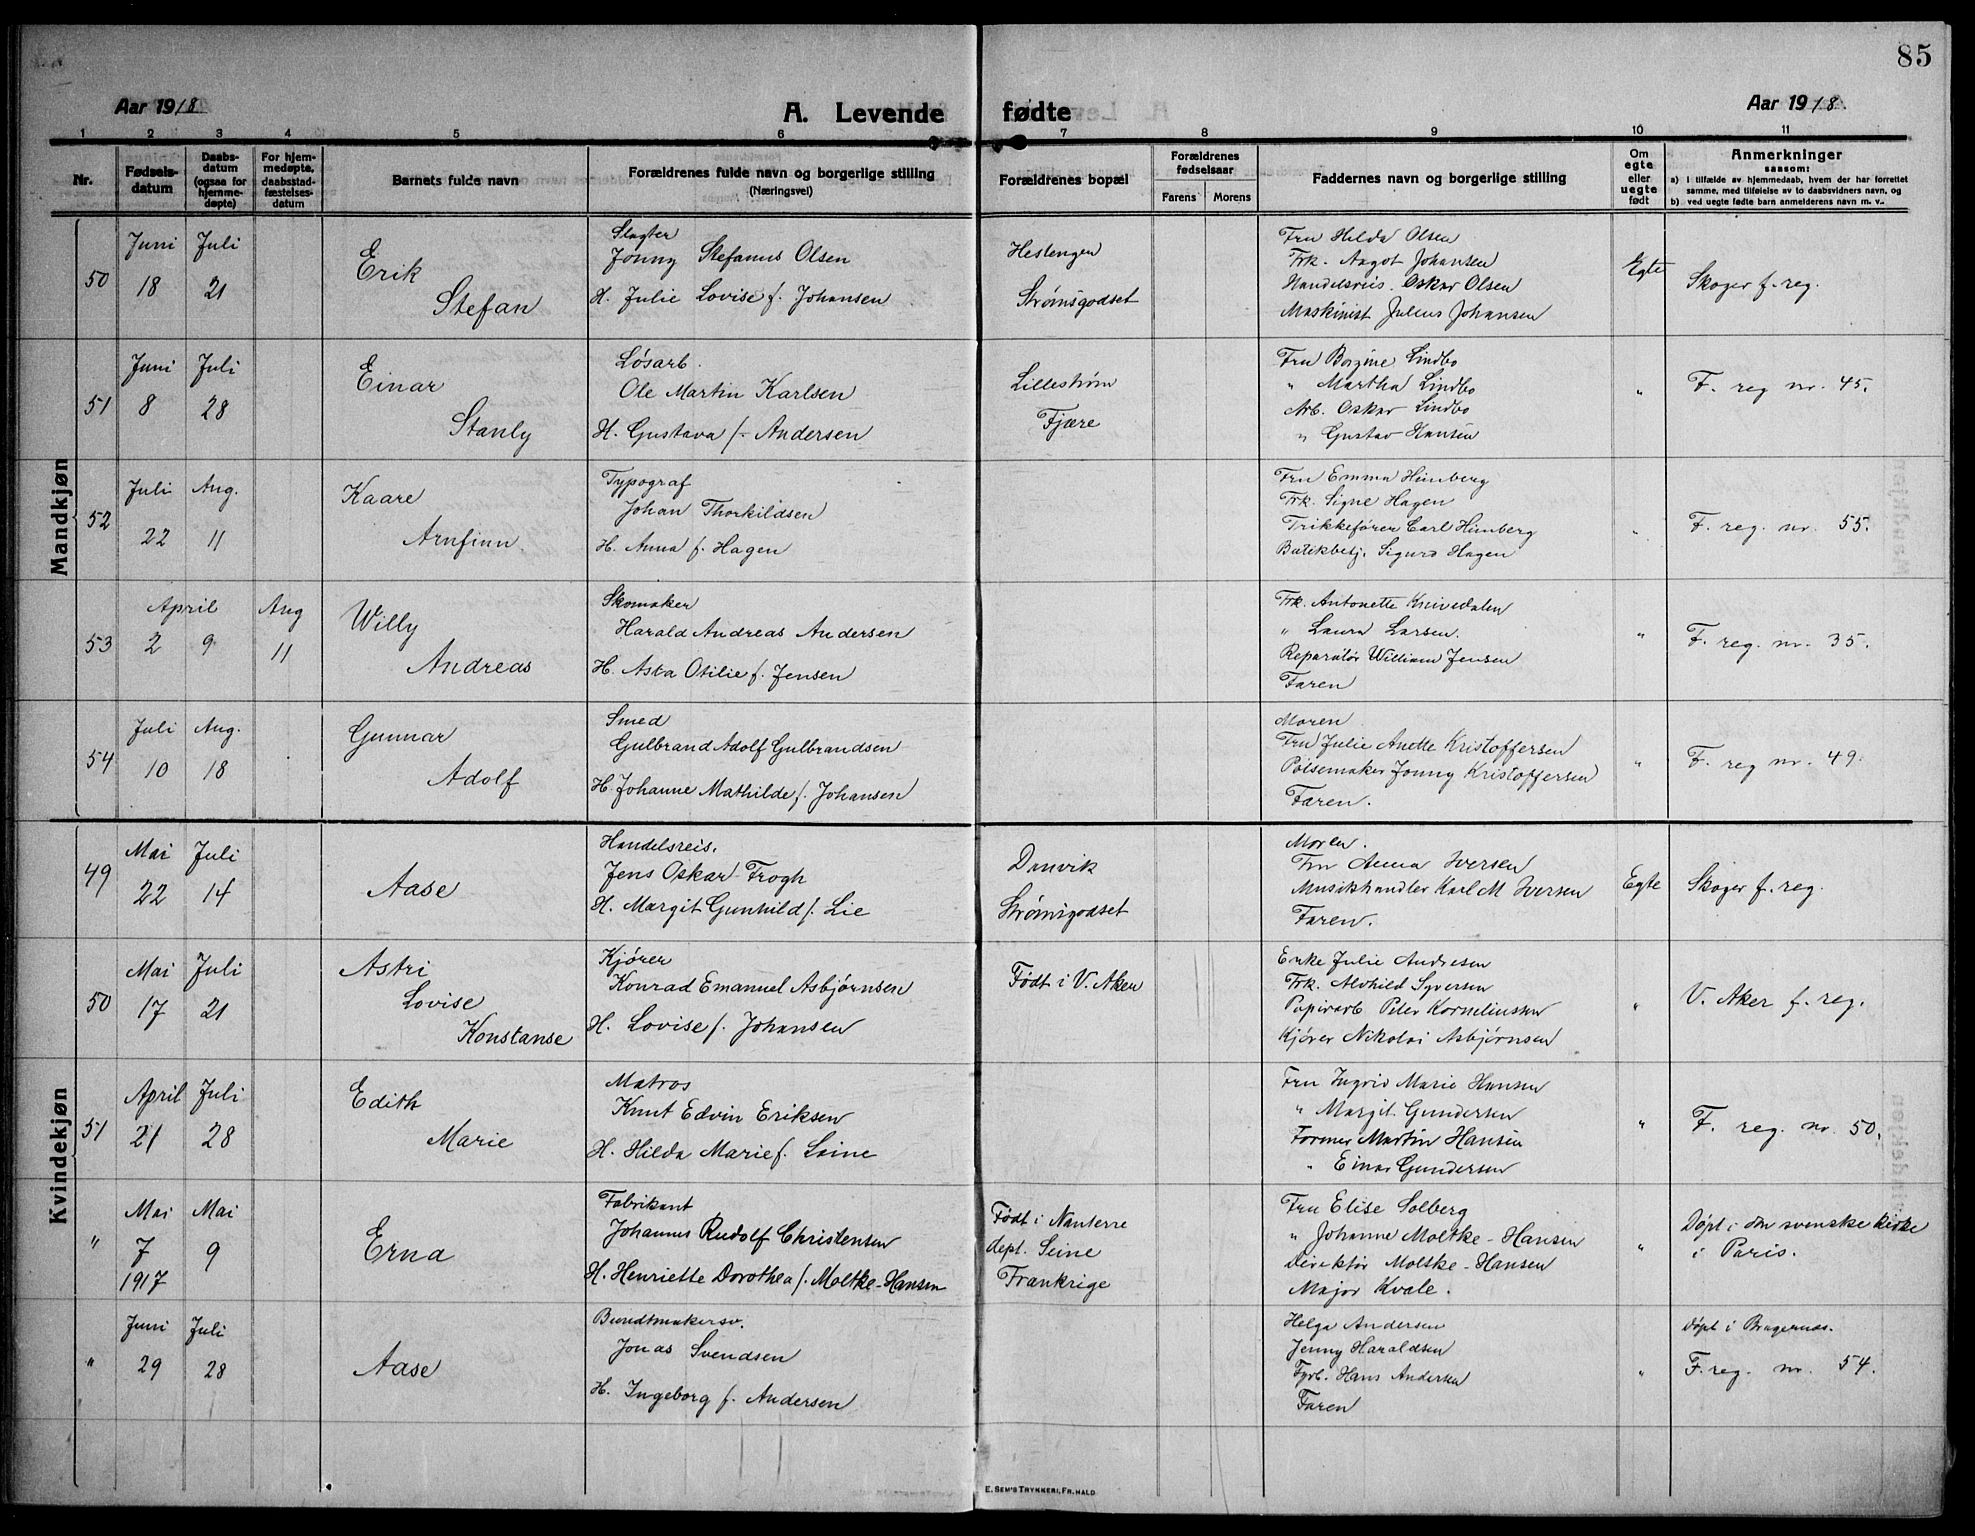 85
Aar 1918
A. Levende fødte
Aar 1918.
1 2 3 4 5 6 7 8 9 10 11
Nr.
Fødselsdatum
Daabsdatum (ogsaa for hjemmedøpte)
For hjemmedøpte, daabsstadfæstelsesdatum
Barnets fulde navn
Forældrenes fulde navn og borgerlige stilling
(Næringsvei)
Forældrenes bopæl
Forældrenes fødselsaar
Farens Morens
Faddernes navn og borgerlige stilling
Om egte eller uegte født
Anmerkninger
saasom:
a) I tilfælde av hjemmedaab, hvem der har forrettet samme, med tilføielse av to daabsvidners navn, og
b) ved uegte fødte barn anmelderens navn m. v..
Mandkjøn
50
Juni 18
Juli 21
Erik
Stefan
Slagter
Jonny Stefanus Olsen
H. Julie Lovise f. Johansen
Heslengen
Strømsgodset
Fru Hilda Olsen
Frk. Aagot Johansen
Handelsreis. Oskar Olsen
Maskinist Julius Johansen
Egte
Skoger f. reg.
51
Juni 8
Juli 28
Einar
Stanly
Løsarb.
Ole Martin Karlsen
H. Gustava f. Andersen
Lillestrøm
Fjære
Fru Borgine Lindbo
" Martha Lindbo
Arb. Oskar Lindbo
" Gustav Hansen
"
F. reg nr. 45.
52
Juli 22
Aug. 11
Kaare
Arnfinn.
Typograf
Johan Thorkildsen
H. Anna f. Hagen
Fru Emma Himberg
Frk. Signe Hagen
Trikkefører Carl Himberg
Butikbetj. Sigurd Hagen
"
F. reg. nr. 55.
53
April 2
9
Aug 11
Willy
Andreas
Skomaker
Harald Andreas Andersen
H. Aska Otilie f. Jensen
Frk. Antonette Knivedalen
" Laura Larsen.
Reparatør William Jensen
Faren
"
F. reg. nr. 35.
54
Juli 10
Aug. 18
Gunnar
Adolf
Smed
Gulbrand Adolf Gulbrandsen
H. Johanne Mathilde f. Johansen
Moren
Fru Julie Anette Kristoffersen
Pølsemaker Jonny Kristoffersen
Faren.
"
F. reg nr. 49.
Kvindekjøn
49
Mai 22
Juli 14
Aase
Handelsreis.
Jens Oskar Frogh
H. Margit Gunhild f. Lie
Danvik
Strømsgodset
Moren.
Fru Anna Iversen
Musikhandler Karl M Iversen
Faren.
Egte
Skoger f. reg.
50
Mai 17
Juli 21
Astri
Lovise
Konstanse
Kjører
Konrad Emanuel Asbjørnsen
H. Lovise f. Johansen
Født i V. Aker
Enke Julie Andresen
Frk. Alvhild Syversen
Papirarb Peter Korneliussen
Kjører Nikolai Asbjørnsen
"
V. Aker f. reg.
51
April 21
Juli 28
Edith
Marie
Matros
Knut Edvin Eriksen
H. Hilda Marie f. Laine
Fru Ingrid Marie Hansen
" Margit Gundersen
Former Martin Hansen
" Einar Gundersen
"
F. reg. nr. 50.
"
Mai 7
1917
Mai 9
Erna
Fabrikant
Johannes Rudolf Christensen
H. Henriette Dorothea f. Moltke-Hansen
Født i Nanterre
dept. Seine
Frankrige
Fru Elise Solberg
" Johanne Moltke-Hansen
Direktør Moltke-Hansen
Major Kvale.
"
Døpt i den svenske kirke
i Paris.
"
Juni 29
Juli 28
Aase
Bundtmakersv.
Jonas Svendsen
H. Ingeborg f. Andersen
Helga Andersen
Jenny Haraldsen
Fyrb. Hans Andersen
Faren
"
Døpt i Bragernes.
F. reg. nr. 54.
E. SEM'S TRYKKERI, FR.HALD